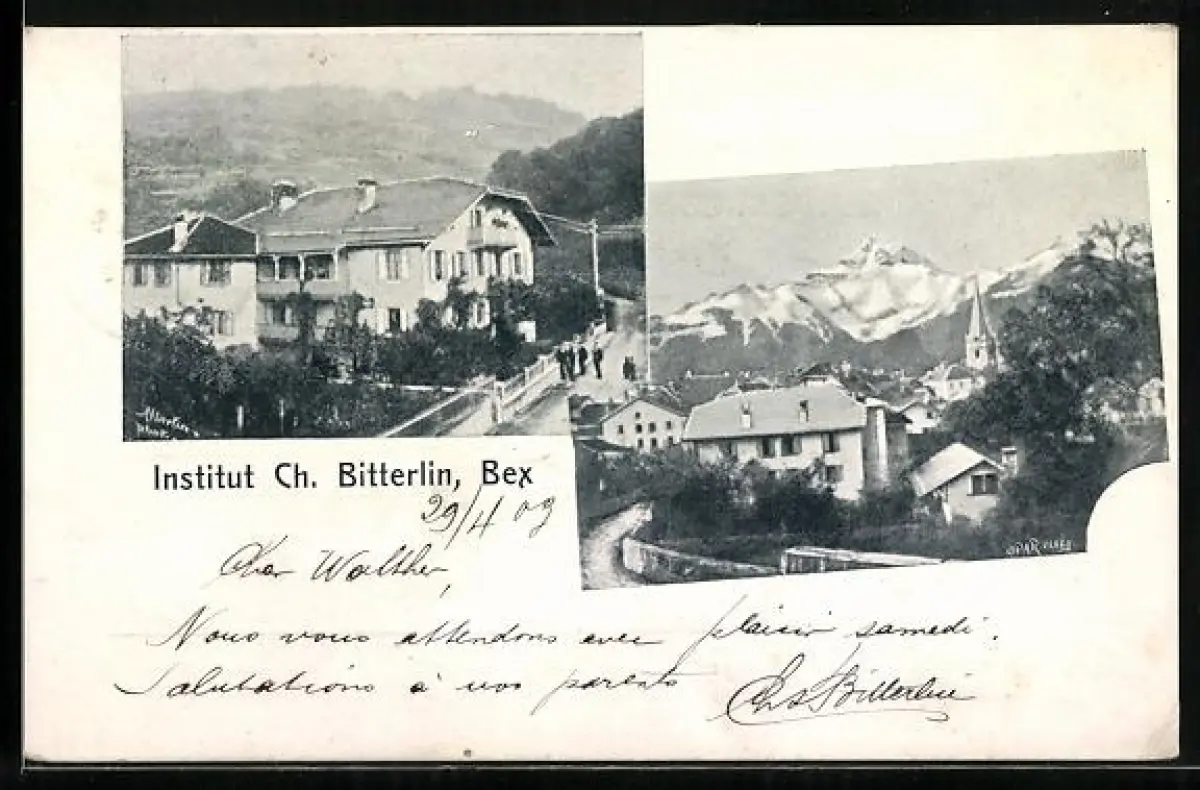 Institut Ch. Bitterlin, Bex
29/4 09
Cher Walther,
Nous vous attendons avec plaisir samedi.
Salutations à vos parents
Chs Bitterlin